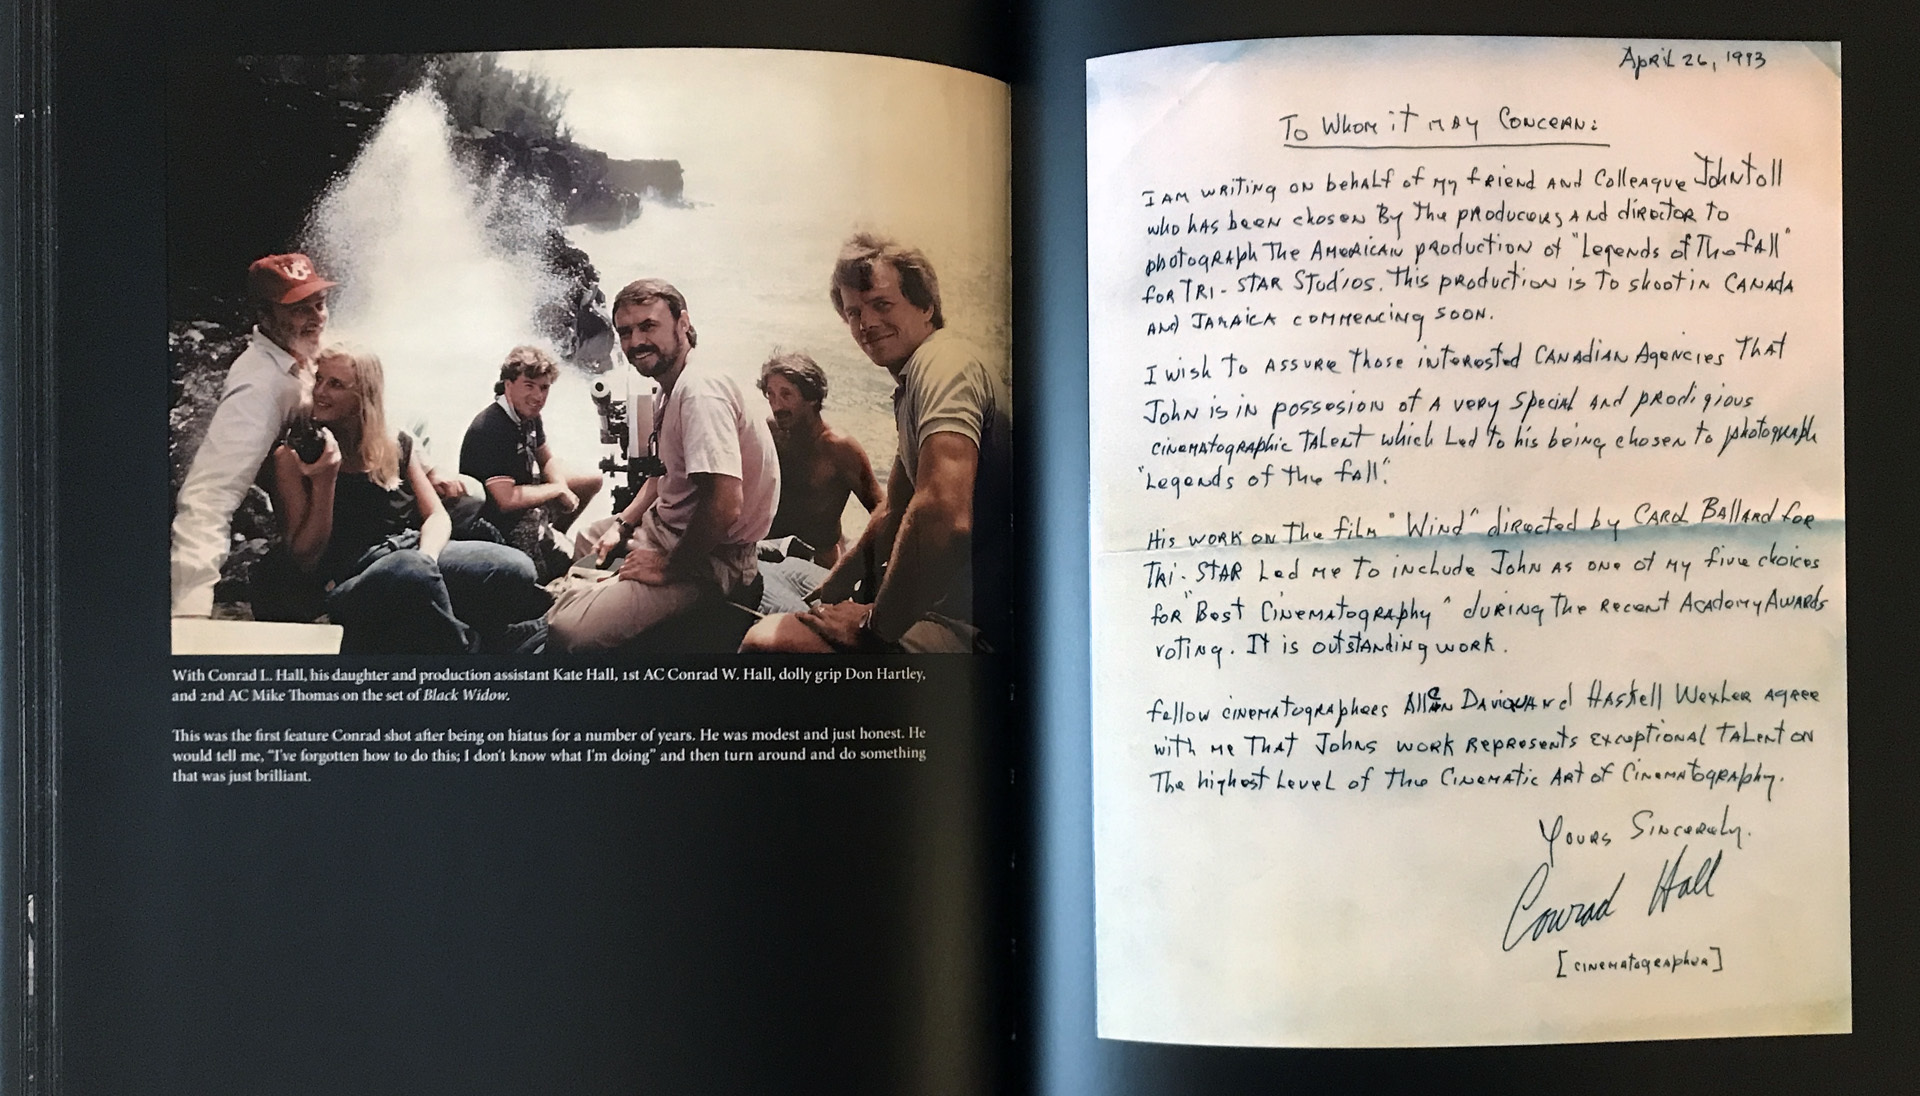 UC
With Conrad L. Hall, his daughter and production assistant Kate Hall, 1st AC Conrad W. Hall, dolly grip Don Hartley,
and 2nd AC Mike Thomas on the set of Black Widow.
This was the first feature Conrad shot after being on hiatus for a number of years. He was modest and just honest. He
would tell me, “I've forgotten how to do this; I don't know what I'm doing” and then turn around and do something
that was just brilliant.
April 26, 1993
To Whom it may Concern:
I am writing on behalf of my friend and Colleague John Toll
who has been chosen By the producers and director to
photograph The American production of "Legends of The fall"
for TRI-STAR Studios. This production is To shoot in CANADA
and Jamaica commencing soon.
I wish To assure those interested Canadian Agencies That
John is in possesion of a very special and prodigious
cinematographic Talent which Led to his being chosen to photograph
"Legends of the fall".
His work on the film "Wind" directed by Carol Ballard for
TRI-STAR Led me to include John as one of my five choices
for "Best Cinematography" during the recent Academy Awards
voting. It is outstanding work.
fellow cinematographers Allen Daviau and Haskell Wexler agree
with me That Johns work represents exceptional Talent on
The highest Level of the Cinematic Art of Cinematography.
Yours Sincerely.
Conrad Hall
[cinematographer]